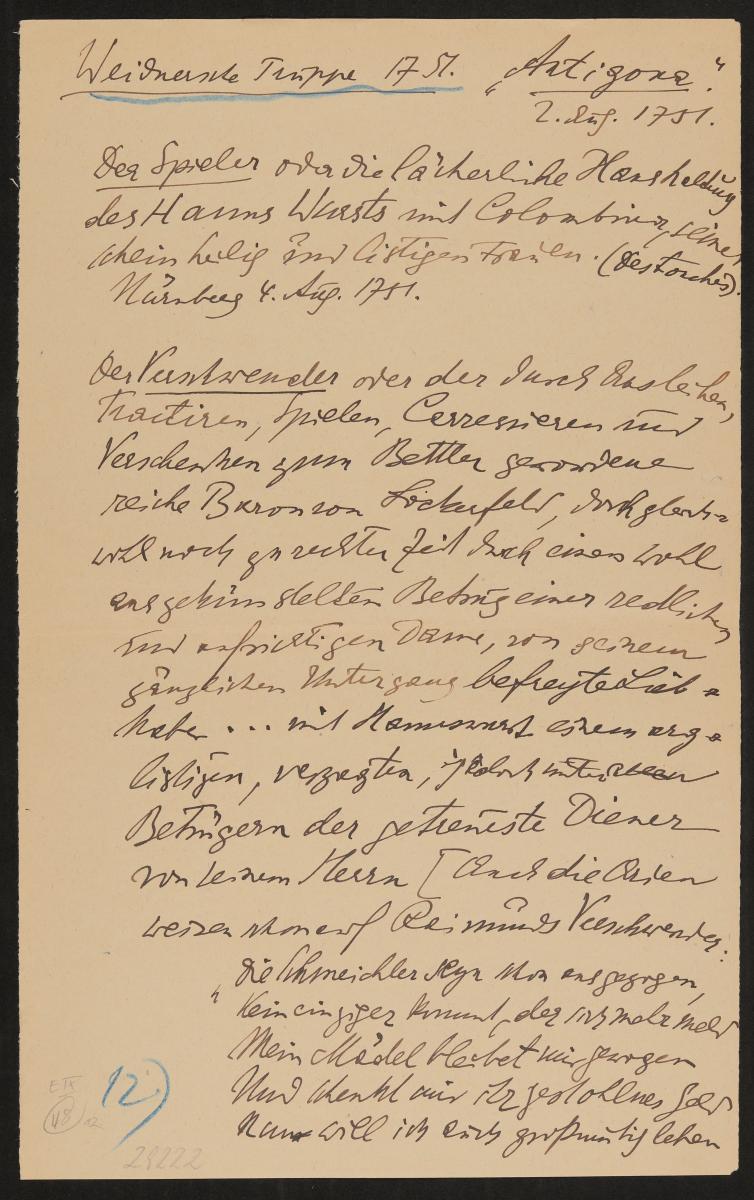 Weidnersche Truppe 1751. „Antigona."
2. Aug. 1751.
Der Spieler oder die lächerliche Haushaltung
des Hanns Wursts mit Colombina, seiner
scheinheilig und listigen Frauen. (Destouches).
Nürnberg 4. Aug. 1751.
Der Verschwender oder der durch Ausleihen,
Tractiren, Spielen, Carressieren und
Verschenken zum Bettler gewordene
reiche Baron von Lockerfeld, doch gleich-
wohl noch zu rechter Zeit durch einen wohl
ausgekünstelten Betrug einer redlichen
und aufrichtigen Dame, von seinem
gänzlichen Untergang befreyte Lieb-
haber ... mit Hannswurst einem arg-
listigen, verzagten, jedoch unter
Betrügern der getreueste Diener
von seinem Herrn [Auch die Arien
weisen schon auf Raimunds Verschwender:
„Die Schmeichler seyn schon ausgezogen,
Kein einziger kommt, der sich mehr meld
Mein Mädel bleibet mir gewogen
Und schenkt mir ihr gestohlnes Geld
Nun will ich auch großmütig leben
12)
ETX
48
12
29222